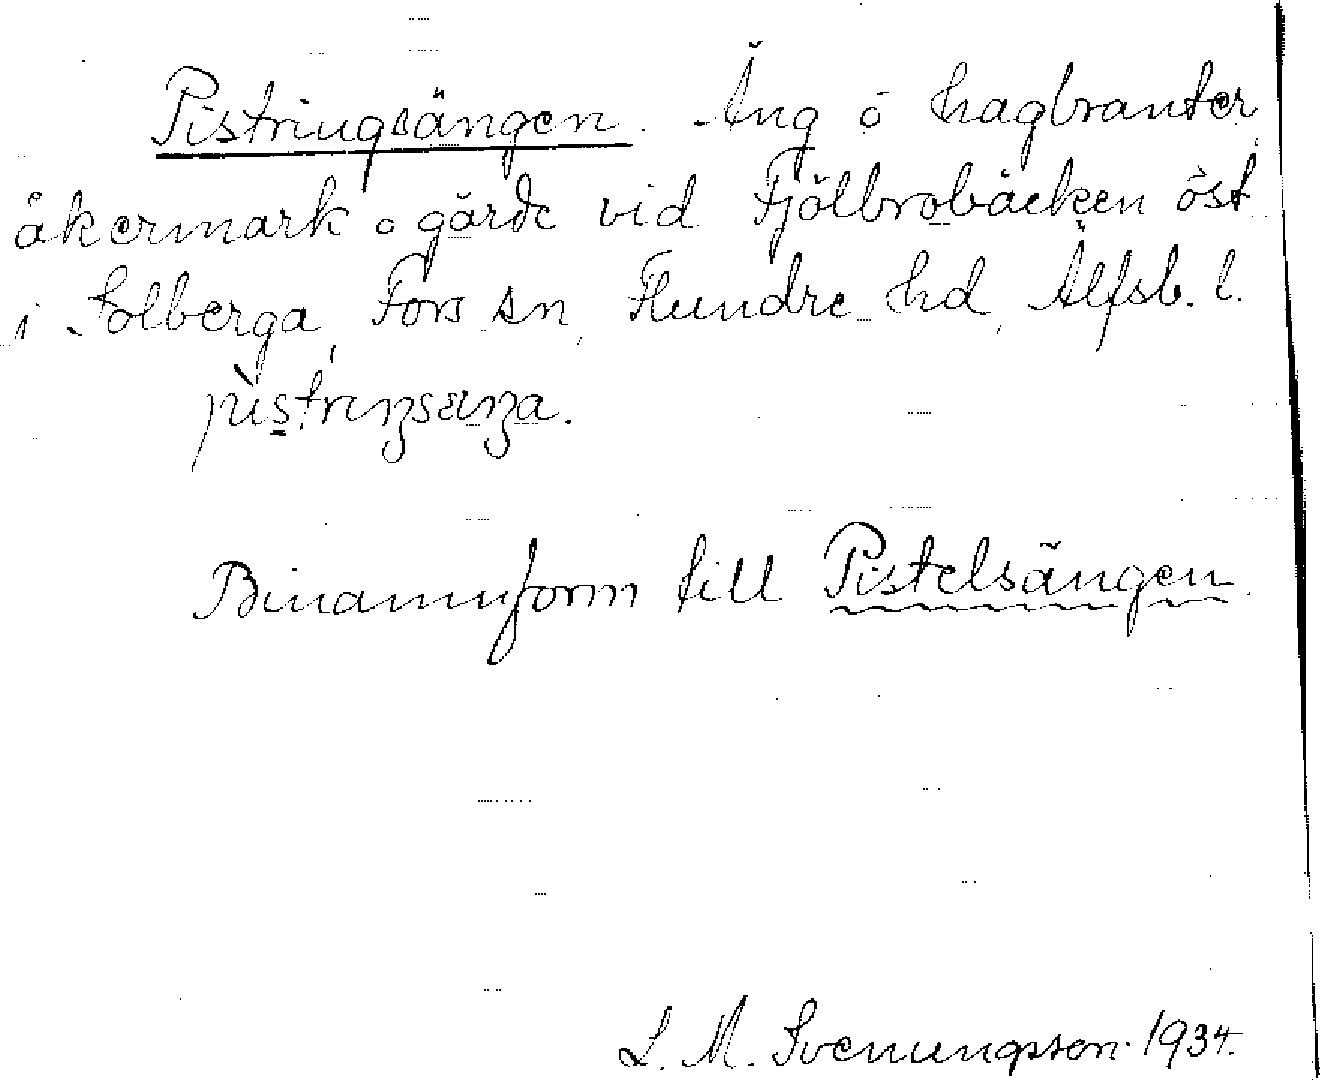 Pistringsängen. Äng o hagbranter,
åkermark o gärde vid Fjölbrobäcken öst
i Solberga, Fors sn, Flundre hd, Älfsb. l.
Binamnform till Pistelsängen.
L. M. Svenungsson. 1934.